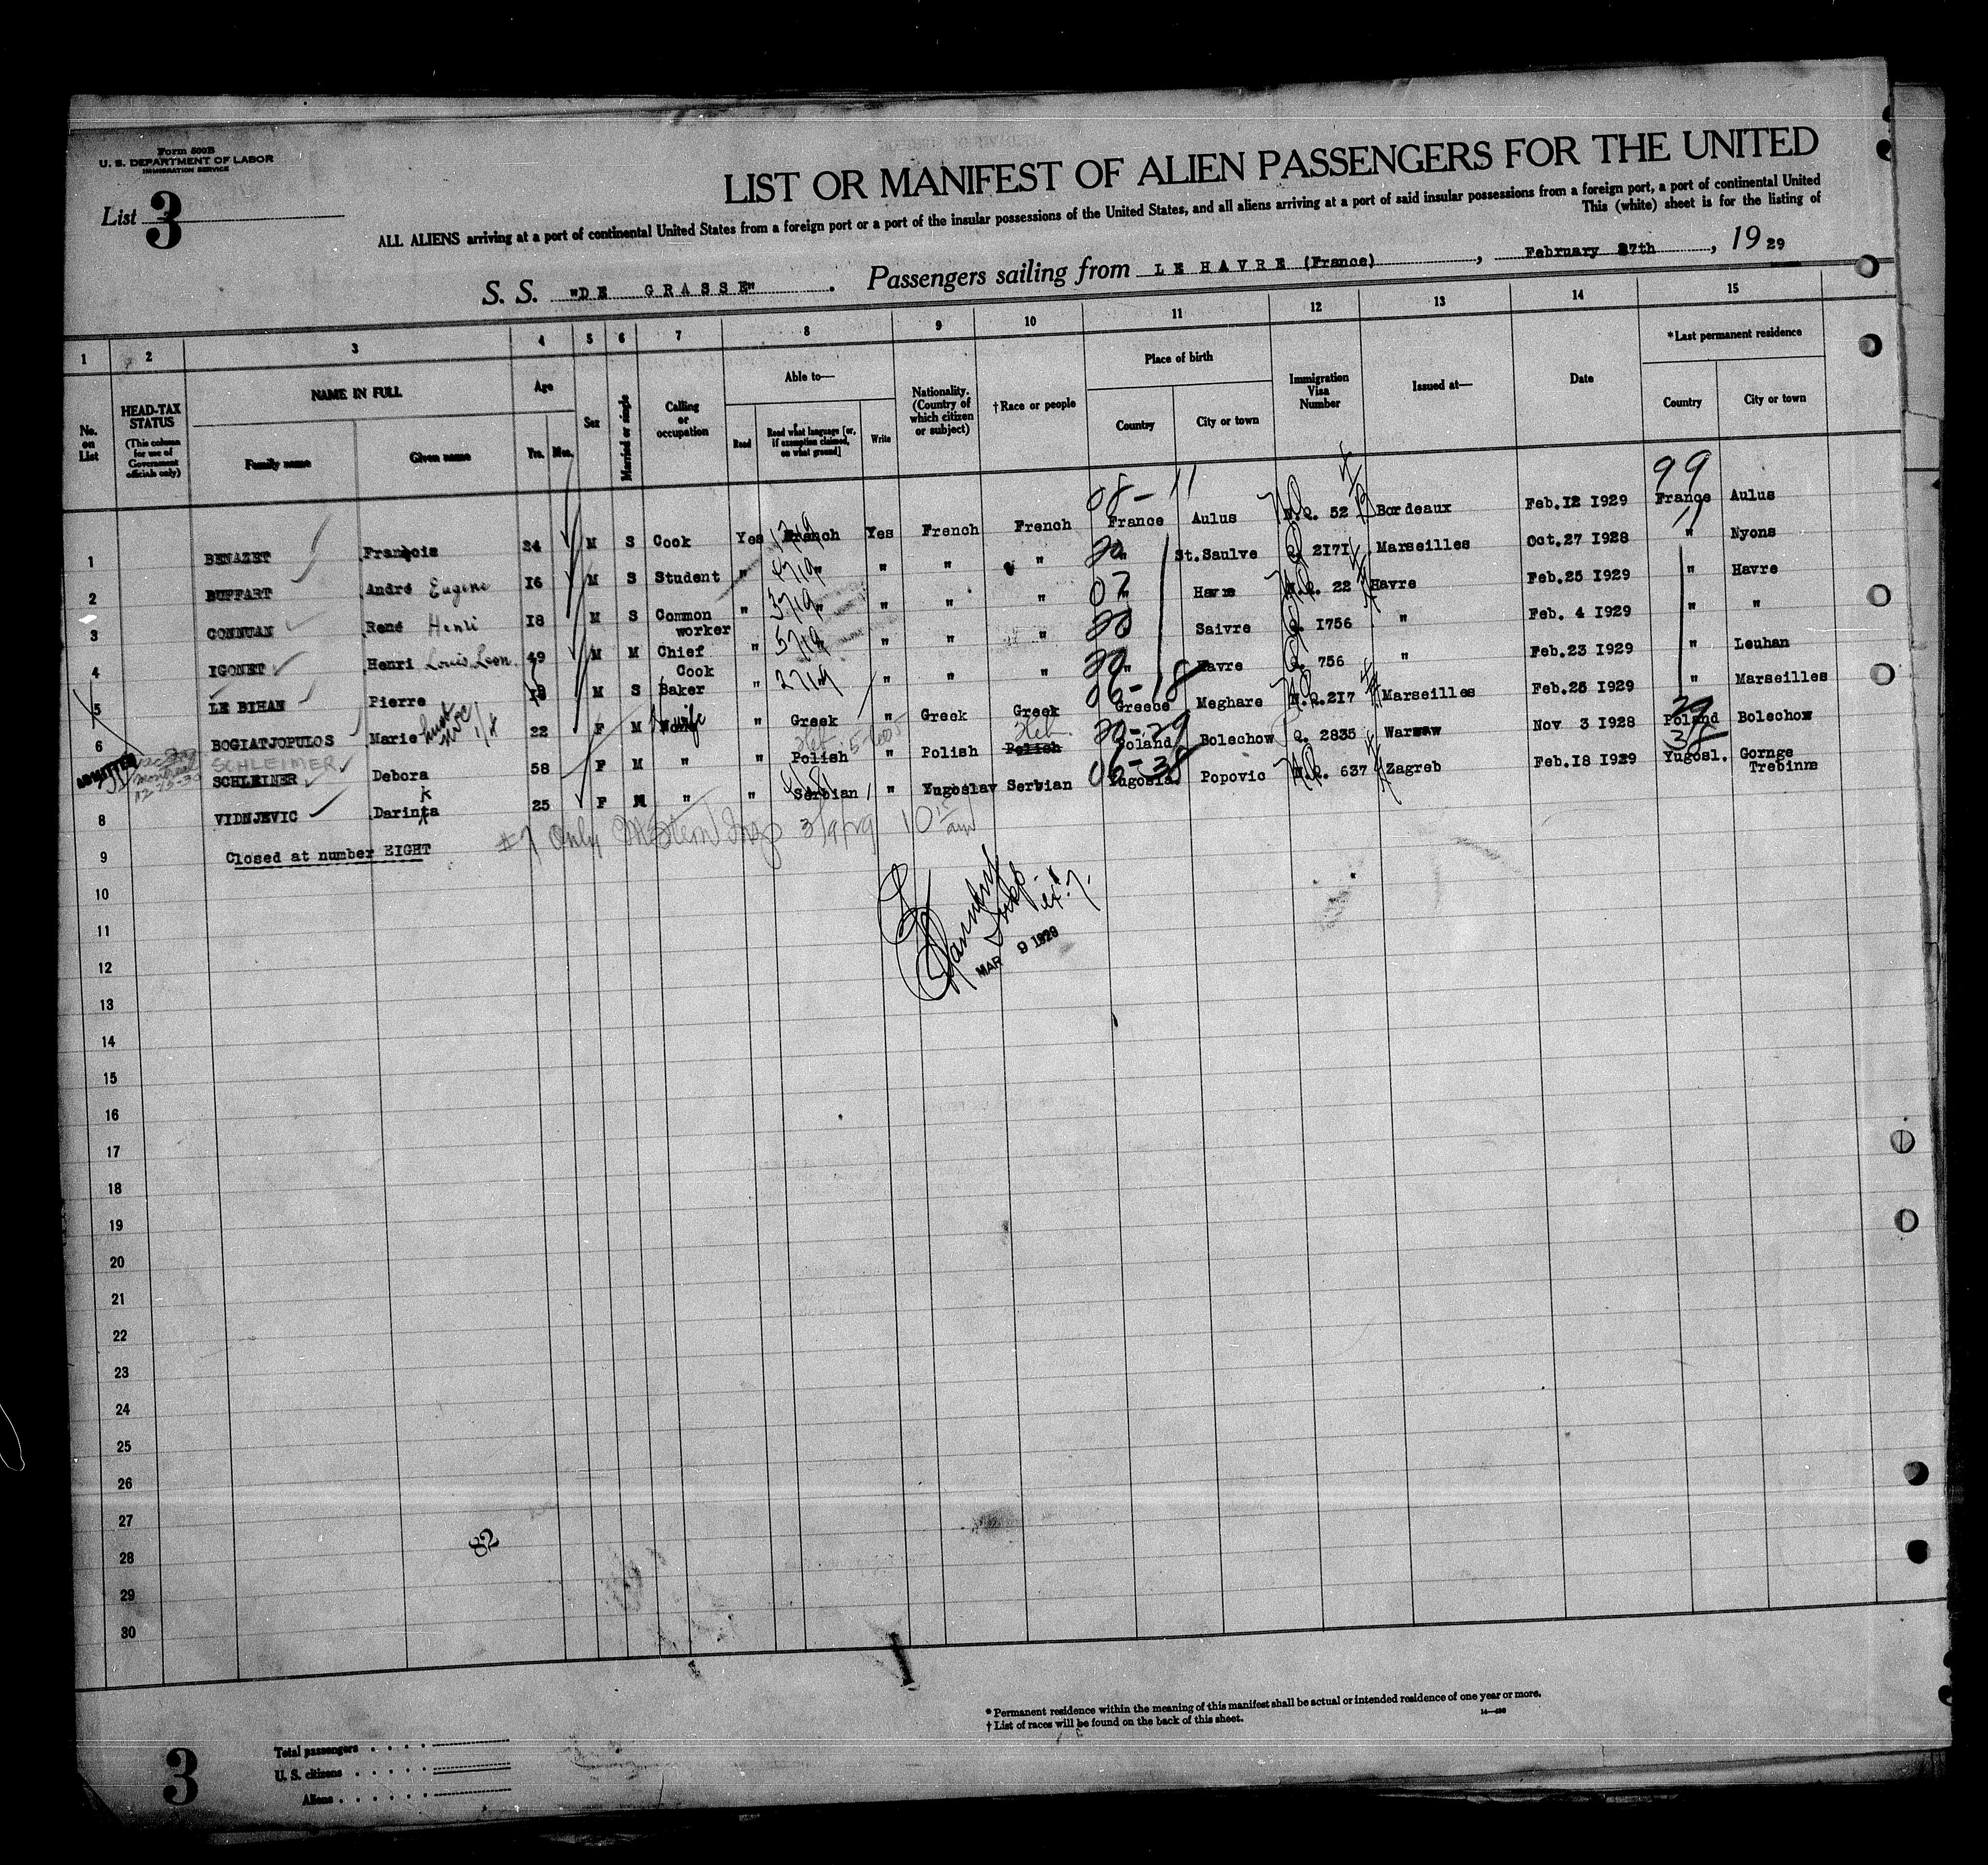 Form 500B
U. S. DEPARTMENT OF LABOR
IMMIGRATION SERVICE
List 3
LIST OR MANIFEST OF ALIEN PASSENGERS FOR THE UNITED
ALL ALIENS arriving at a port of continental United States from a foreign port or a port of the insular possessions of the United States, and all aliens arriving at a port of said insular possessions from a foreign port, a port of continental United
This (white) sheet is for the listing of
S. S. "DE GRASSE". Passengers sailing from LE HAVRE (France), February 27th, 1929
1 2 3 4 5 6 7 8 9 10 11 12 13 14 15
No. on List
HEAD-TAX STATUS (This column for use of Government officials only)
NAME IN FULL
Family name Given name
Age
Yrs. Mos.
Sex
Married or single
Calling or occupation
Able to—
Read Read what language [or, if exemption claimed, on what ground] Write
Nationality. (Country of which citizen or subject)
†Race or people
Place of birth
Country City or town
Immigration Visa Number
Issued at—
Date
*Last permanent residence
Country City or town
08-11 99
1 BENAZET François 24 M S Cook Yes French Yes French French France Aulus N.Q. 52 Bordeaux Feb.12 1929 France Aulus
2 BUFFART André Eugene 16 M S Student " " " " " " St.Saulve Q. 2171 Marseilles Oct.27 1928 " Nyons
3 CONNUAN René Henri 18 M S Common worker " " " " " " Havre N.Q. 22 Havre Feb.25 1929 " Havre
4 IGONET Henri Louis Leon 49 M M Chief Cook " " " " " Saivre Q. 1756 " Feb. 4 1929 " "
5 LE BIHAN Pierre M S Baker " " " " " " Havre Q. 756 " Feb.23 1929 " Leuhan
6 BOGIATJOPULOS Marie 22 F M wife " Greek " Greek Greek Greece Meghare N.Q.217 Marseilles Feb.25 1929 " Marseilles
ADMITTED SCHLEIMER
SCHLEINER Debora 58 F M " " Polish " Polish Polish Heb Poland Bolechow Q. 2835 Warsaw Nov 3 1928 Poland Bolechow
8 VIDNJEVIC Darinta 25 F M " " Serbian " Yugoslav Serbian Yugosla. Popovic N.Q. 637 Zagreb Feb.18 1929 Yugosl. Gornge Trebinme
#7 Only 3/9/29 10 am
9 Closed at number EIGHT
10
11
MAR 9 1929
12
13
14
15
16
17
18
19
20
21
22
23
24
25
26
27
82
28
29
30
* Permanent residence within the meaning of this manifest shall be actual or intended residence of one year or more.
† List of races will be found on the back of this sheet.
3
Total passengers
U. S. citizens
Aliens